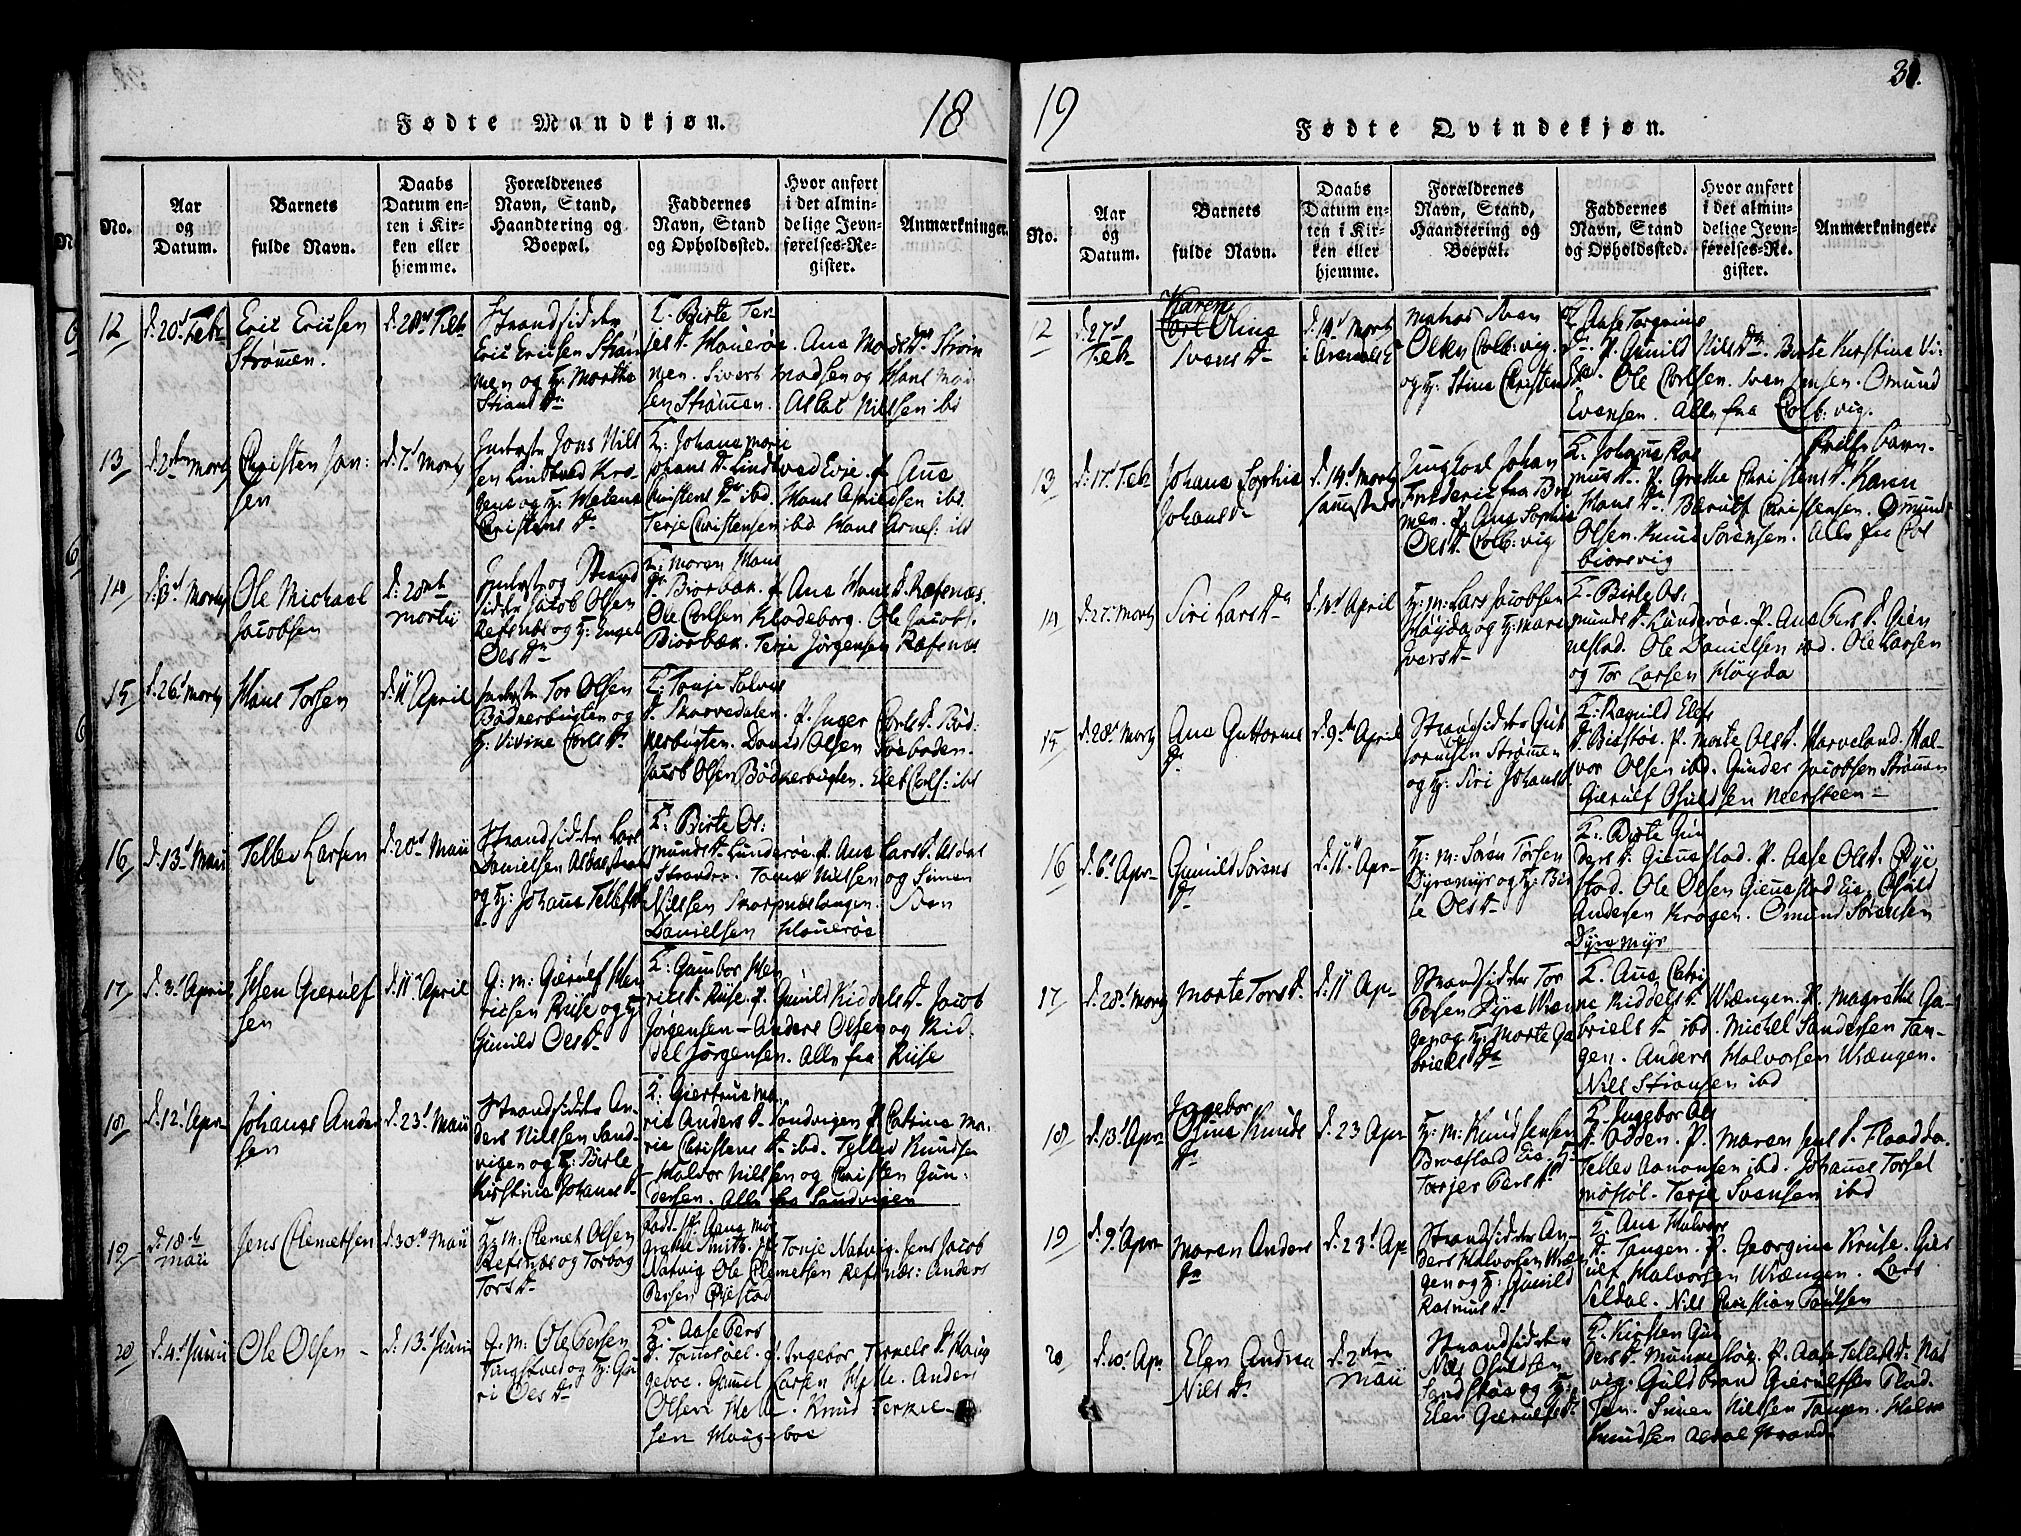 18
Fødte Mandkjøn.
No.
Aar og Datum.
Barnets fulde Navn.
Daabs Datum enten i Kirken eller hjemme.
Forældrenes Navn, Stand, Haandtering og Boepæl.
Faddernes Navn, Stand og Opholdssted.
Hvor anført i det almindelige Jevnførelses-Register.
Anmærkninger.
12
d. 20d Feb
Eric Ericsen
Strømen.
d. 28d Feb
Strandsidder
Eric Ericsen Strøm
men og H: Marthe
Stians dr
F: Birte Ter
jesd. Hauerøe. Ane Madsdr Strøm
men. Sivert Madsen og Hans Mad
sen Strømen. Aslac Nielsen ibd
13
d. 2den Martz
Christen Jon:
sen
d. 7d Martz
Jons Nils
sen Lindtved
og H: Malene
Christens dr
F: Johane Marie
Johans d. Lindtved Evje. P. Ane
Christens dr ibd. Hans ibd.
Terje Christensen ibd Hans ibd
14
d. 3d Martz
Ole Michael
Jacobsen
d. 28nt
Martii
og Strand
sidder Jacob Olsen
Refsnes og H: Engel
Oles dr
F: Maren Hans
dr Biorbæk. P. Ane Hans d. Refsnæs.
Ole Carlsen Klodeborg. Ole Jacobs.
Biorbæk. Terje Jørgensen Refsnæs
15
d. 26d Martz
Hans Torsen
d. 11 April
Tor Olsen
Bødkerbugten og
H: Vivine Carls dr
F: Tonje Salves
d. Skarvedalen. P. Inger Carls d. Bød
kerbugten. David Olsen
Jacob Olsen Bødkerbugten. Elef Carls: ibd
16
d. 13d Maii
Tellev Larsen
d. 20d Maii
Strandsidder Lars
Danielsen Aldalstrand
og H: Johanne Tellefsd
F: Birte Os:
munds d. Lunderøe. P. Ane Larsd. Aldal
Stranden. Tomas Nilsen og Simen
Nilsen Skarpnæstangen. Sven
Danielsen Hauerøe
17
d. 3d April
Hen Gierulf
sen
d. 11 April
G: M: Gierulf Hen
ricsen Riise og H:
Gunild Oles dr
F: Gunbor Hen
ricsd. Riise. P. Gunild Kiddels d. Jacob
Jørgensen - Anders Olsen og Kid
del Jørgensen. Alle fra Riise
18
d. 12d Apr
Johannes Ander
sen
d. 23d Maii
Strandsidder An
ders Nilsen Sand
vigen og H: Birte
Kirstine Johans d
F: Giertrue Ma
rie Anders d. Sandvigen P. Catrine Ma
rie Christens d. ibd. Tellev Knudsen
- Halvor Nilsen og Christen Gun
dersen. Alle fra Sandvigen
19
d. 18de
Maii
Jens Clemetsen
d. 30d Maii
H: M: Clemet Olsen
Refsnæs og Torborg
Tors dr
Mar
grethe Smith. P. Tonje Natvig. Jens Jacob
Natvig Ole Clemetsen Refsnæs: Anders
Persen
20
d. 4d Junii
Ole Olsen -
d. 13d Junii
G: M: Ole Persen
og H: Gu
ri Oles dr
F: Aase Pers
d. P. Ingebor Terkels d. Haug
geboe. Gamel Larsen Helle. Anders
Olsen Helle. Knud Terkel-
sen Haugeboe
19
31.
Fødte Qvindekjøn.
No.
Aar og Datum.
Barnets fulde Navn.
Daabs Datum enten i Kirken eller hjemme.
Forældrenes Navn, Stand, Haandtering og Boepæl.
Faddernes Navn, Stand og Opholdssted.
Hvor anført i det almindelige Jevnførelses-Register.
Anmærkninger.
12
d. 27d
Feb
Karen
Oline
Svens dr
d. 14d Martz
i Arendal
Matros Sven
Olsen Colb:vig.
og H: Stine Christens
F: Aase Torgrims
d. P. Gunild Nils dr. Birte Kirstine
Ole Carlsen. Sven Jensen. Omund
Evensen. Alle fra Colb:vig.
13
d. 17d Feb
Johane Sophie
Johans dr
d. 14d Martz
Ungkarl Johan
Frederic fra Bre
men. P. Ane Sophie
Oles d. Colb:vig
F: Johane Ras
mus d. P. Grethe Christens d. Karen
Hans dr. Børulf Christensen. Omund
Olsen. Knud Sørensen. Alle fra Col
biørsvig
14
d. 27d Martz
Siri Lars dr
d. 4d April
H: M: Lars Jacobsen
Høgda og H: Mari
Ivers dr
F: Birte Os
munds d. Lunderøe. P. Ane Pers d. Gien
nestad. Ole Danielsen ibd. Ole Larsen
og Tor Larsen Høgda
15
d. 28d Martz
Ane Guttorms
dr
d. 9de April
Strandsidder Gut
tormsen Strømen
og H: Siri Johansd
F: Ragnild Elefs
d. Biestøe. P. Marte Oles d. Harveland. Hal-
vor Olsen ibd. Gunder Jacobsen Strømen
Gierulf Osuldsen Neersteen -
16
d. 6d Apr
Gunild Sørens
dr
d. 11 Apr
H: M: Søren Torsen
Dyremyr og H: Bir
te Oles dr
F: Birte Gun
ders d. Giennestad. P. Aase Ols d. Bye
stad. Ole Olsen Giennestad Eie. Osuld
Andersen Krogen. Omund Sørensen
Dyremyr
17
d. 28d Martz
Marte Tors d.
d. 11 Apr
Strandsidder Tor
Persen Dyre Wran
gen og H: Marte Ga
briels dr
F: Ane Catri
ne Kiddels d. Wrængen. P. Magrethe Ga-
briels d. ibd. Michel Sandersen Tan-
gen. Anders Halvorsen Wrængen.
Nils Stiansen ibd
18
d. 13d Apr
Ingebor
Knuds
dr
d. 23 Apr
H: M: Knud Jensen
Braastad Eie.
Torjer Pers dr
F: Ingebor Ols
d. Odden. P. Maren Jens d. Flødda.
Tellev Aanonsen ibd. Johannes Torsen
Terje Svensen ibd
19
d. 9d Apr
Maren Anders
dr
d. 23d Ap
Strandsidder An
ders Halvorsen Wræn
gen og H: Gunild
Rasmus d.
F: Ane Halvors
d. Tangen. P. Georgine Kruse. Gier
ulf Halvorsen Wrængen. Lars
Seldal. Nils Christian Paulsen
20
d. 10d Apr
Elen Andrea
Nils dr
d. 2den
Maii
Strandsidder
Nils Osuldsen
Sandstøe og H:
Elen Gierulfsd
F: Kirsten Gun
ders d. P. Aase Tellefs d. Nat
vig. Guldbrand Gierulfsen Flad
Simen Nilsen Tangen. Halvor
Knudsen Aldal Strand.